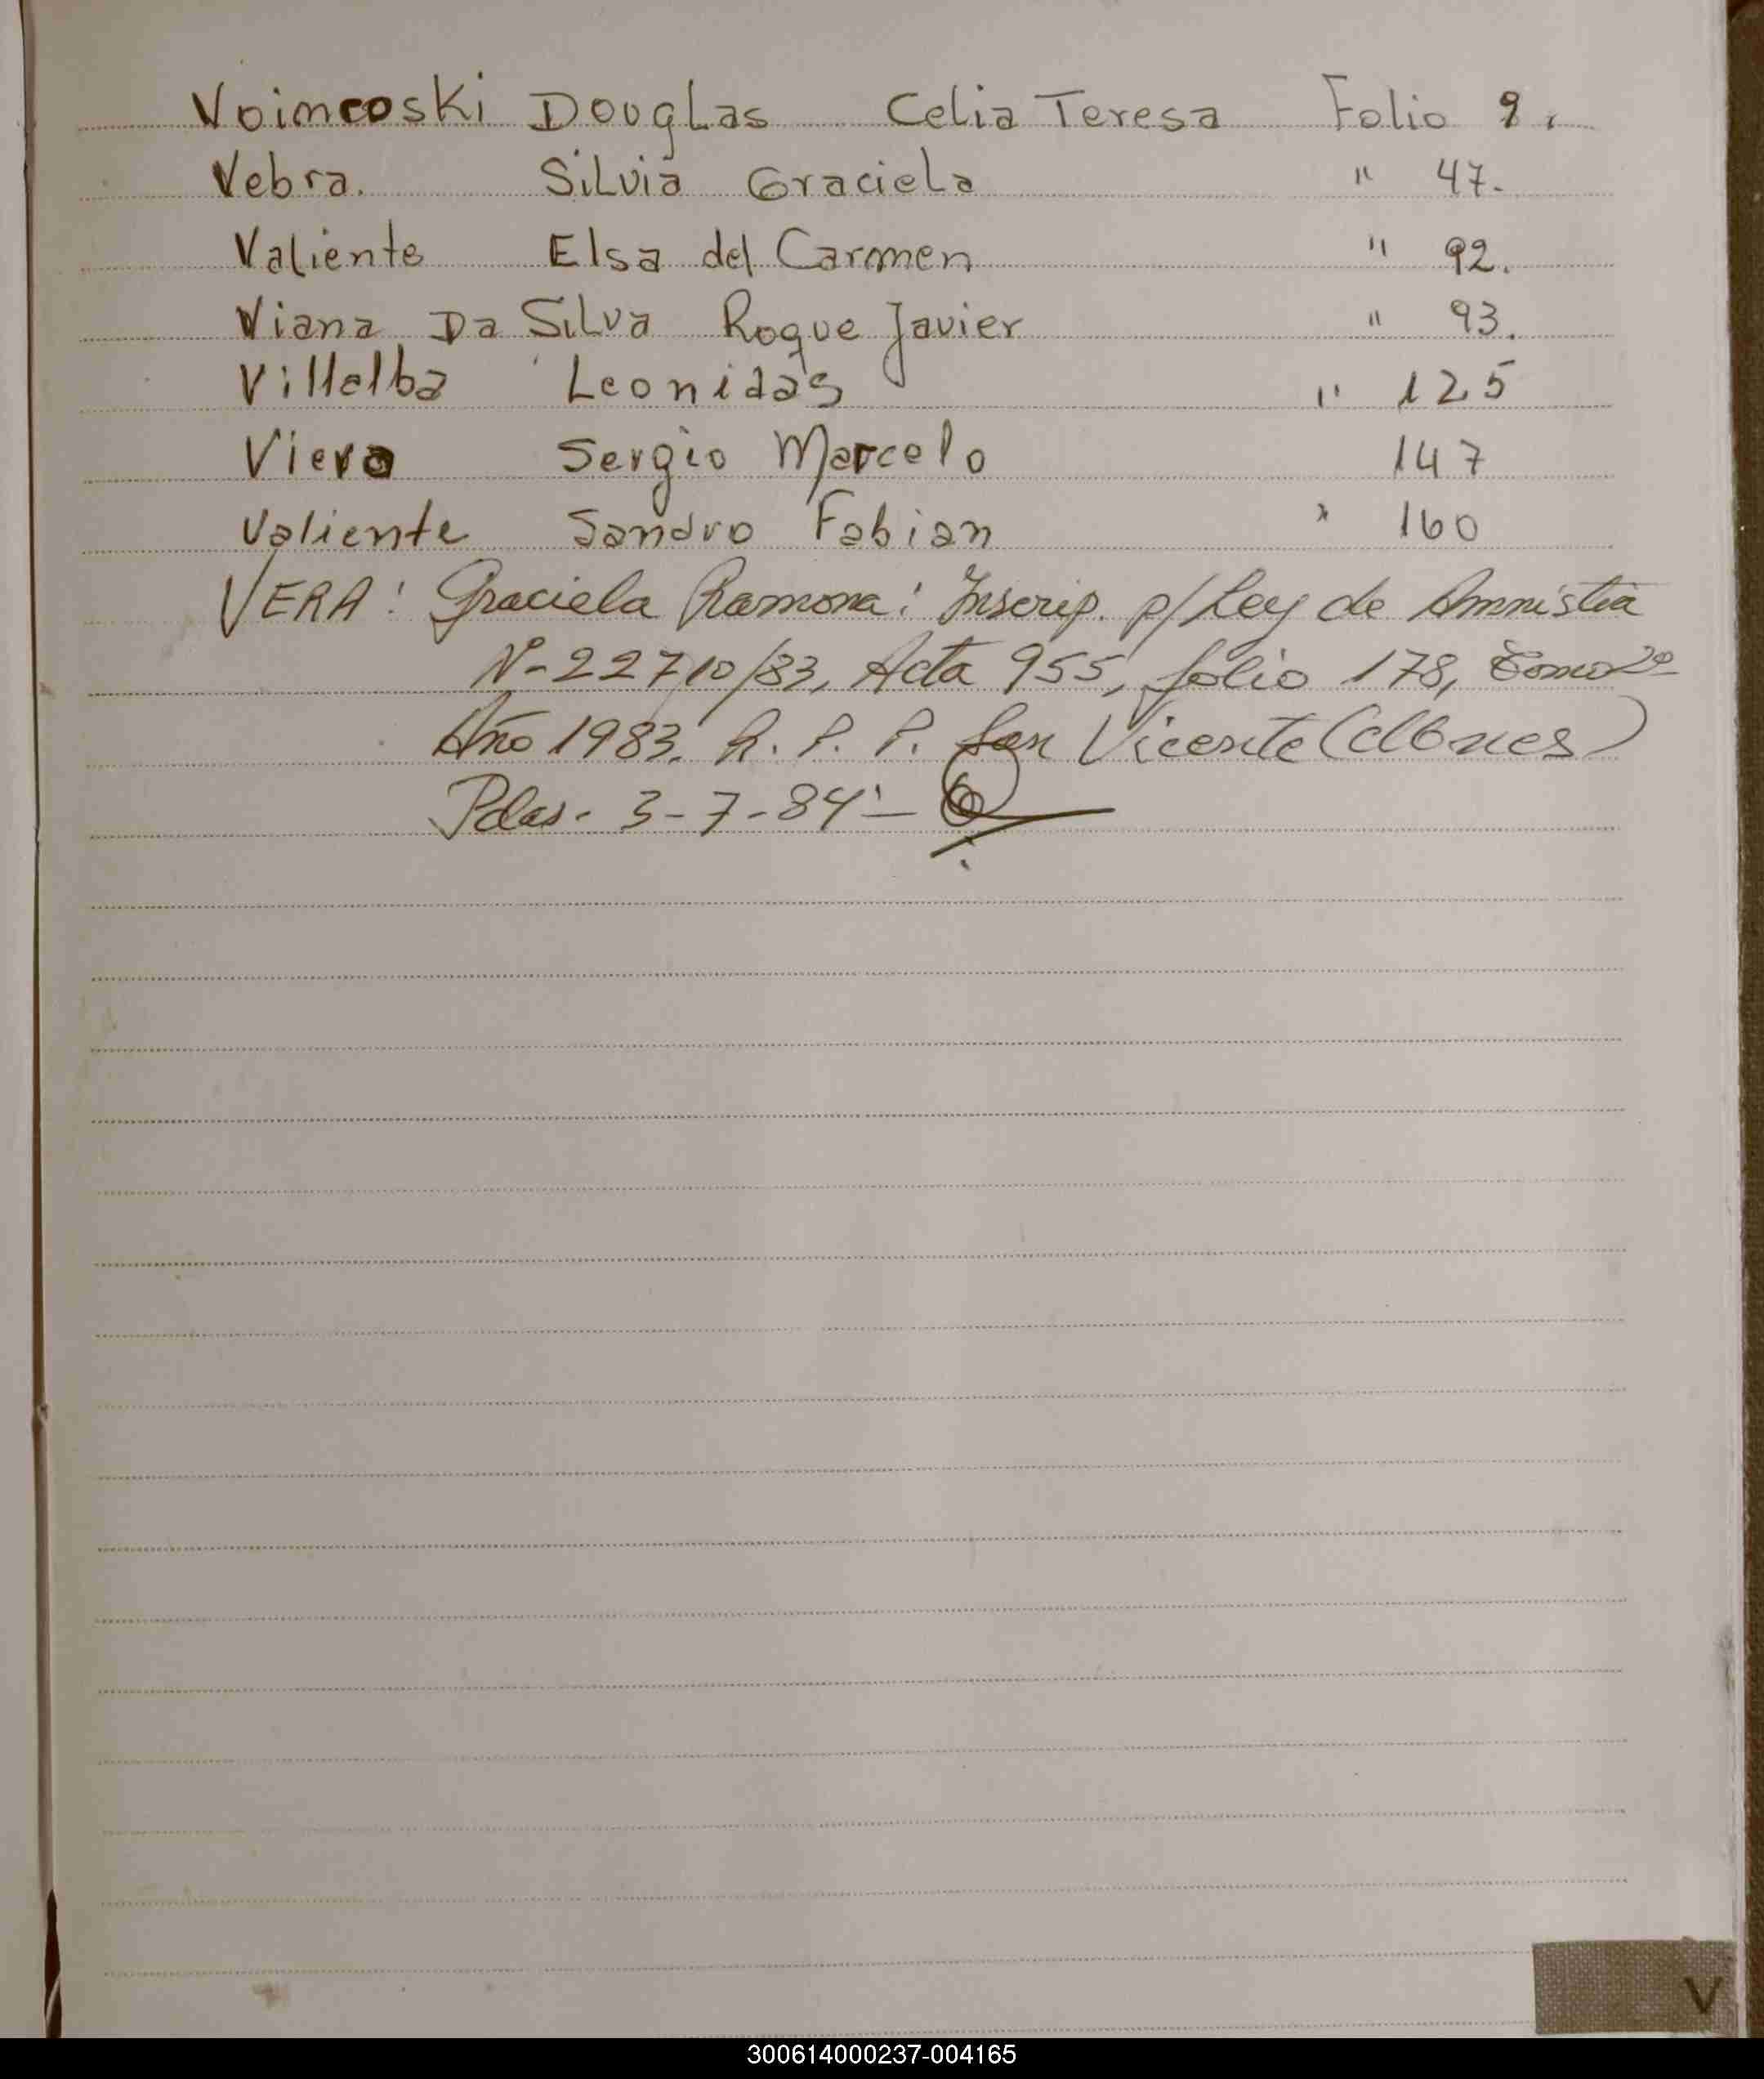 Voincoski Douglas Celia Teresa Folio 9.
Vebra. Silvia Graciela " 47.
Valiente Elsa del Carmen " 92.
Viana Da Silva Roque Javier " 93.
Villalba Leonidas " 125
Viera Sergio Marcelo 147
Valiente Sandro Fabian " 160
VERA: Graciela Ramona: Inscrip. p/ Ley de Amnistia
Nº 22710/83, Acta 955, folio 178, Tomo 2º
Año 1983. R. P. P. San Vicente
Pdas. 3-7-84-
V
300614000237-004165